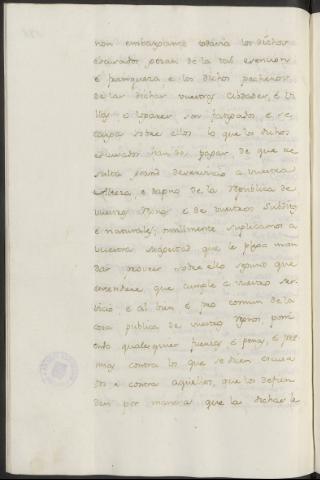 non embargante todavia los dichos
escusados gozan de la tal esencion
e franqueza, e los dichos pecheros
de las dichas vuestras Cibdades, e Vi
llas e Logares son fatigados e re
carga sobre ellos lo que los dichos
escusados han de pagar, de que re
sulta grand deservicio a vuestra
Alteza, e dapno de la Republica de
vuestros Regnos e de vuestros Subditos
e naturales; omilmente suplicamos a
vuestra Magestad que le plega man
dar proveer sobre ello segund que
entendiere que cumple a vuestro ser
vicio, e al bien e pro comun de la
cosa publica de vuestros Regnos, poni
endo qualesquier fuerzas e penas, e pre
mias contra los que se dicen escusa
dos e contra aquellos, que los defien
den por manera que la dicha le